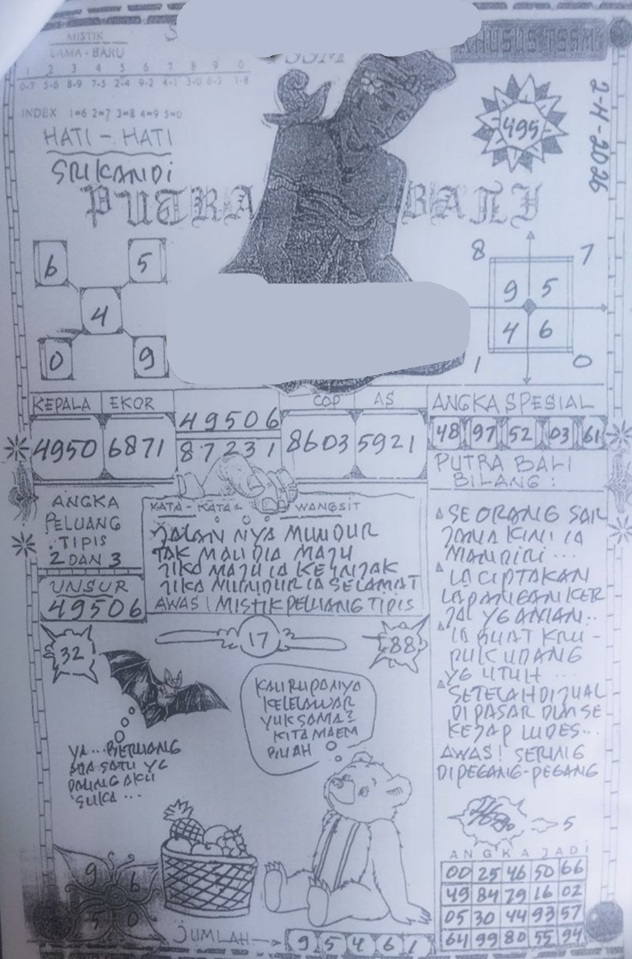 MISTIK
LAMA - BARU
1 2 3 4 5 6 7 8 9 0
INDEX 1=6 2=7 3=8 4=9 5=0
HATI - HATI
SRIKANDI
PUTRA BALI
KHUSUS TSSM
495
2-4-2026
6 5
4
0 9
8 7
9 5
4 6
1 0
KEPALA EKOR
4950 6871
49506
87231
COP AS
8603 5921
ANGKA SPESIAL
48 97 52 03 61
PUTRA BALI
BILANG :
ANGKA
PELUANG
TIPIS
2 DAN 3
UNSUR
49506
KATA - KATA WANGSIT
JALAN NYA MUNDUR
TAK MAU DIA MAJU
JIKA MAJU IA KEINJAK
JIKA MUNDUR IA SELAMAT
AWAS! MISTIK PELUANG TIPIS
SEORANG SAR
JANA KINI IA
MANDIRI ...
IA CIPTAKAN
LAPANGAN KER
JA YG AMAN..
IA BUAT KRU-
PUK UDANG
YG UTUH ...
SETELAH DIJUAL
DI PASAR DLM SE
KEJAP LUDES...
AWAS! SERING
DIPEGANG-PEGANG
32
17
88
KAU RUPANYA
KELELAWAR
YUK SAMA2
KITA MAEM
BUAH
YA... BERUANG
ADA SATU YG
PALING AKU
SUKA ...
5
ANGKA JADI
00 25 46 50 66
49 84 79 16 02
05 30 44 93 57
64 99 80 55 94
9 6
5 0
JUMLAH → 9 5 4 6 1